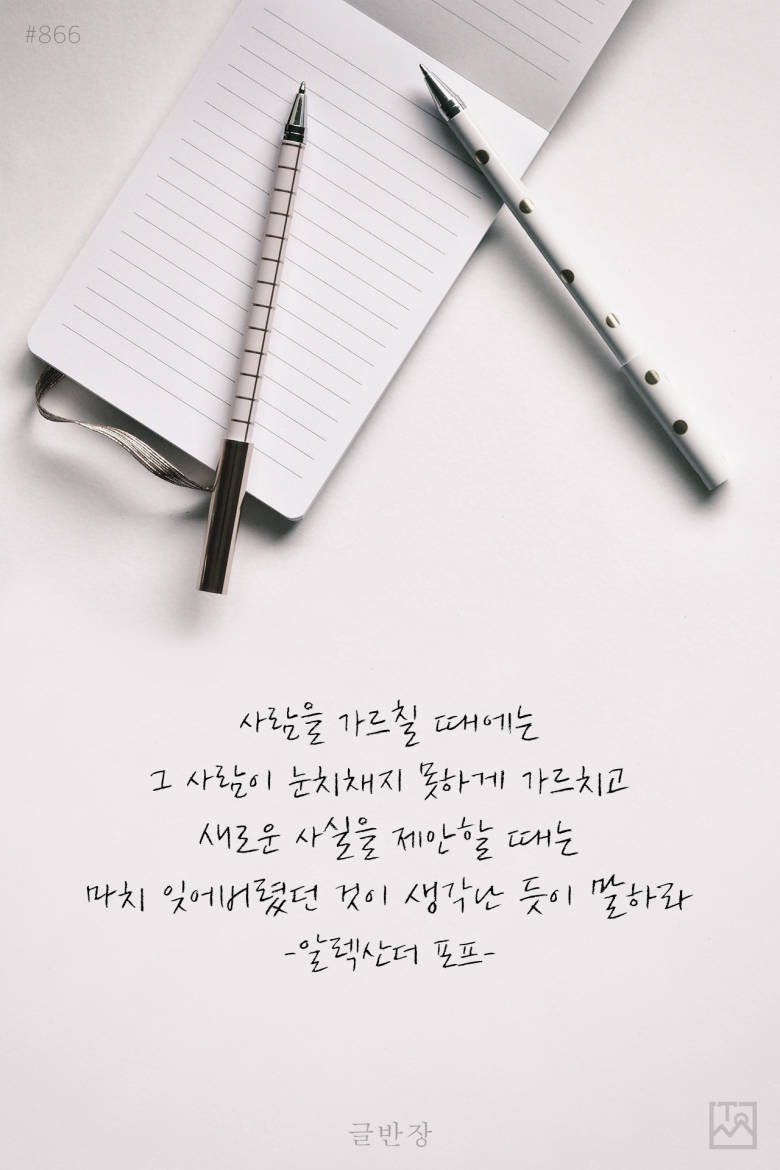 #866
사람을 가르칠 때에는
그 사람이 눈치채지 못하게 가르치고
새로운 사실을 제안할 때는
마치 잊어버렸던 것이 생각난 듯이 말하라
-알렉산더 포프-
글반장